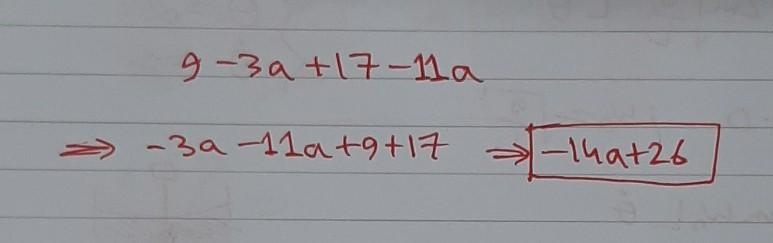 9 -3a +17 -11a
⇒ -3a -11a +9 +17 ⇒ -14a+26